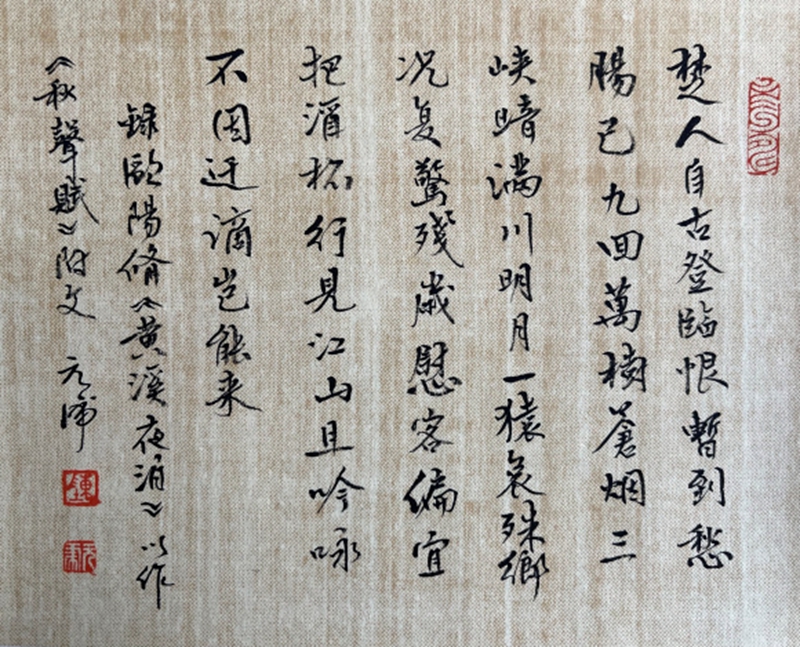 楚人自古登臨恨暫到愁
腸已九回萬樹蒼烟三
峽暗滿川明月一猿哀殊鄉
况复驚殘歲慰客偏宜
把酒杯行見江山且吟咏
不因迁谪岂能来
録歐陽脩《黄溪夜泊》以作
《秋聲賦》附文